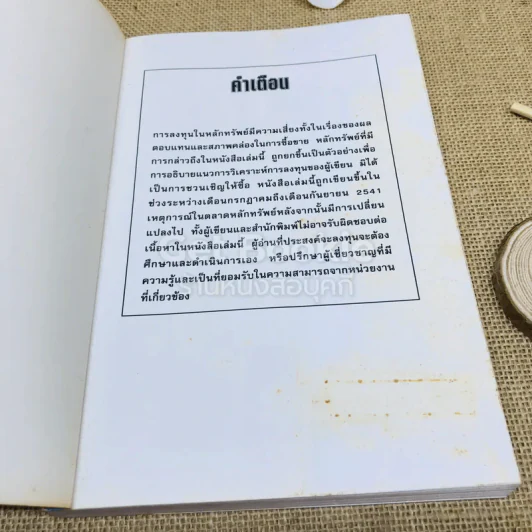 คำเตือน
การลงทุนในหลักทรัพย์มีความเสี่ยงทั้งในเรื่องของผล
ตอบแทนและสภาพคล่องในการซื้อขาย หลักทรัพย์ที่มี
การกล่าวถึงในหนังสือเล่มนี้ ถูกยกขึ้นเป็นตัวอย่างเพื่อ
การอธิบายแนวการวิเคราะห์การลงทุนของผู้เขียน มิได้
เป็นการชวนเชิญให้ซื้อ หนังสือเล่มนี้ถูกเขียนขึ้นใน
ช่วงระหว่างเดือนกรกฎาคมถึงเดือนกันยายน 2541
เหตุการณ์ในตลาดหลักทรัพย์หลังจากนั้นมีการเปลี่ยน
แปลงไป ทั้งผู้เขียนและสำนักพิมพ์ไม่อาจรับผิดชอบต่อ
เนื้อหาในหนังสือเล่มนี้ ผู้อ่านที่ประสงค์จะลงทุนจะต้อง
ศึกษาและดำเนินการเอง หรือปรึกษาผู้เชี่ยวชาญที่มี
ความรู้และเป็นที่ยอมรับในความสามารถจากหน่วยงาน
ที่เกี่ยวข้อง
ร้านหนังสือบุคภี